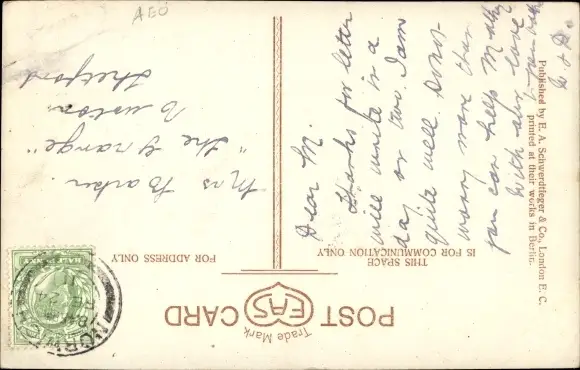 POST CARD
EAS
Trade Mark
THIS SPACE
IS FOR COMMUNICATION ONLY
FOR ADDRESS ONLY
Dear M.
Thanks for letter
will write in a
day or two. I am
quite well. Don't
worry more than
you can help
With love
Mrs Barker.
"The Grange"
Euston
Thetford
HALFPENNY
NORWICH
Published by E. A. Schwerdtfeger & Co., London E. C.
printed at their works in Berlin.
AEO